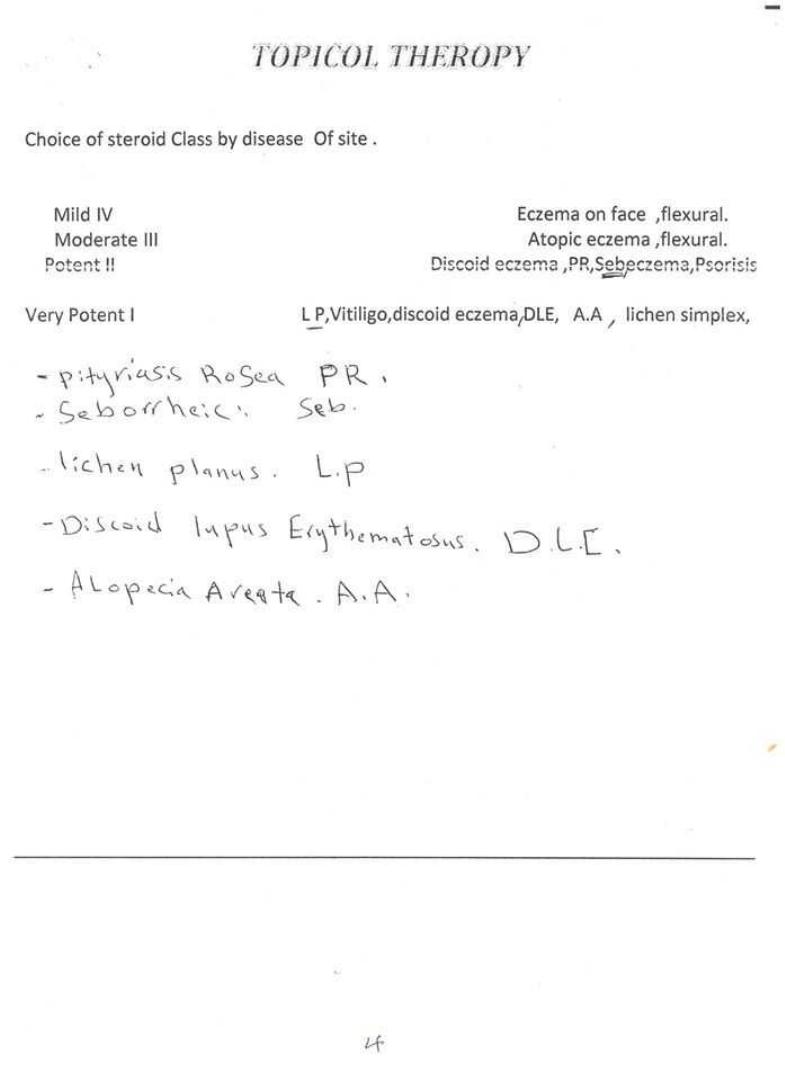 TOPICOL THEROPY
Choice of steroid Class by disease Of site .
Mild IV Eczema on face ,flexural.
Moderate III Atopic eczema ,flexural.
Potent II Discoid eczema ,PR,Sebeczema,Psorisis
Very Potent I L P,Vitiligo,discoid eczema,DLE, A.A , lichen simplex,
- pityriasis Rosea PR .
- Seborrheic: Seb.
- lichen planus. L.P
- Discoid lupus Erythematosus. D.L.E.
- ALopecia Areata . A.A.
4